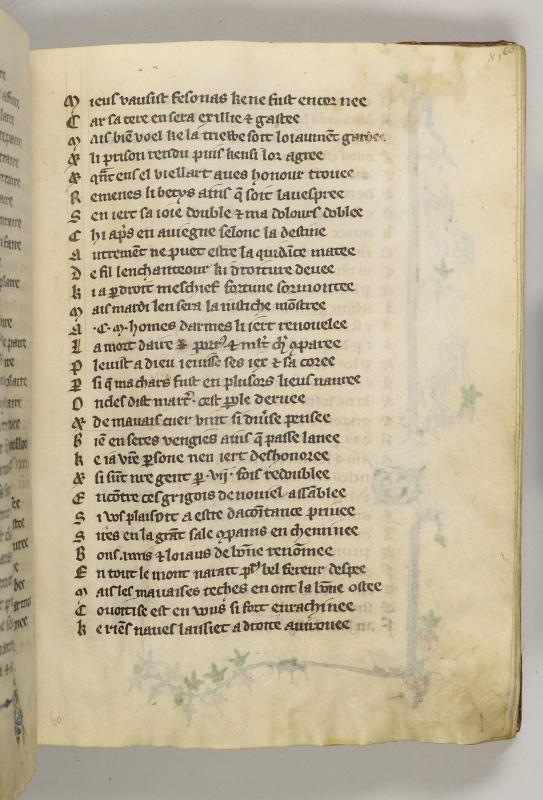 60
M ieus vausist fesonas ke ne fust encor nee
C ar sa tere en sera exillie & gastee
M ais biē voel ke la triewe soit loiaumēt gardee
& li prison rendu puis kensi lor agree
& q̄nt ensel viellart aues honour trouee
R emenes li betys ains q̄ soit lauespree
S en iert sa ioie double & ma dolours doblee
C hi ap̄s en auiegne selonc la destine
A utremēt ne puet estre la quidāce matee
D e fil lenchanteour ki droiture deuee
K i a p droit meschief fortune sormontee
M ais mardi len sera la iustiche mōstree
A .C. M. homes darmes ki iert renouelee
L a mort daire & & cōparee
P leuist a dieu ieuisse ses iex & sa coree
P si q̄ ma chars fust en plusors lieus nauree
O ncles dist cest pole deruee
& de mauais cuer vint si diuse pensee
B iē en seres vengies ains q̄ passe lanee
K e ia vr̄e psone nen iert deshonoree
& si sunt nr̄e gent p .vij. fois redoublee
E ncōtre ces grigois de nouiel assāblee
S i vos plaisoit a estre dacontance priuee
S ires en la grāt sale cōparans en cheminee
B ons amis & loiaus de bōne renōmee
E n tout le mont narait bel fereur despee
M ais les mauaises teches en ont la bōne ostee
C ouoitise est en vous si fort enrachinee
K e riēs naues laissiet a droite auironee
60